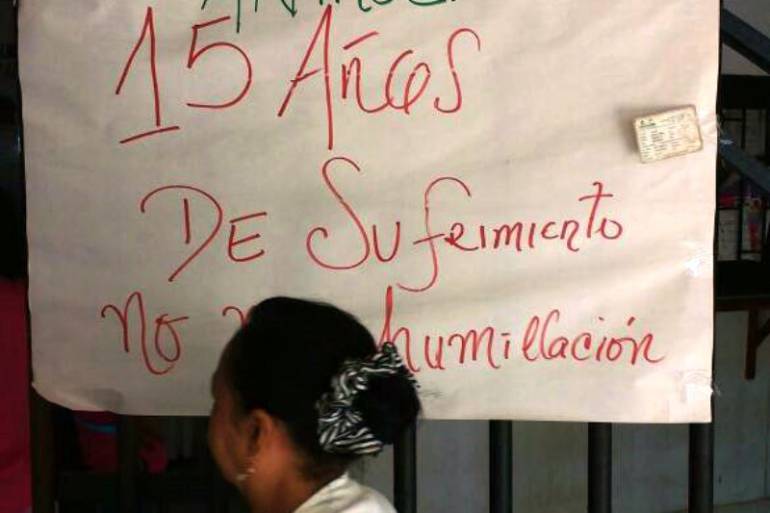 15 Años
DE Sufrimiento
no humillación